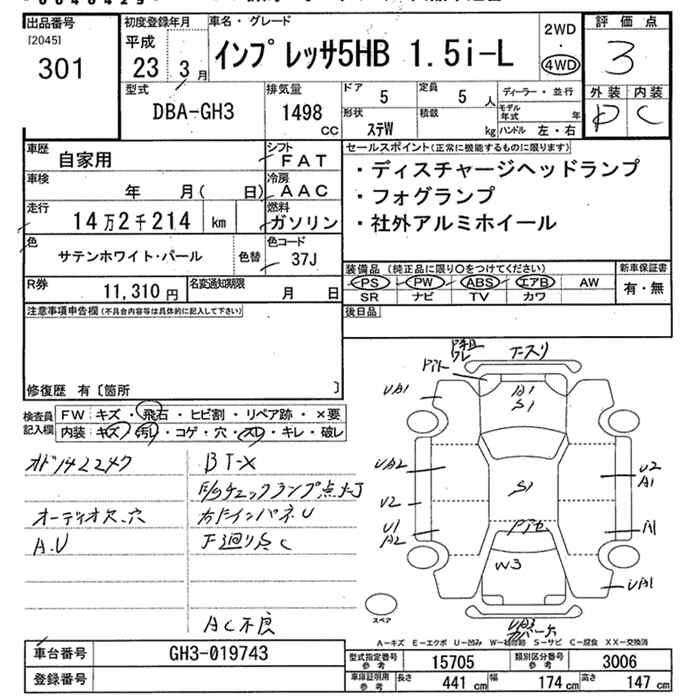 出品番号
[2045]
301
初度登録年月
平成
23 3月
車名・グレード
インプレッサ5HB 1.5i-L
2WD
・
4WD
評価点
3
外装 内装
D C
型式
DBA-GH3
排気量
1498
CC
ドア
5
定員
5 人
形状
ステW
積載
kg
ディーラー・並行
モデル年式 年
ハンドル 左・右
車歴
自家用
シフト
FAT
車検
年 月( 日)
冷房
AAC
走行
14万2千214 km
燃料
ガソリン
色
サテンホワイト・パール
色替
色コード
37J
R券
11,310 円
名変通知期限
月 日
セールスポイント(正常に機能するものに限ります)
・ディスチャージヘッドランプ
・フォグランプ
・社外アルミホイール
装備品 (純正品に限り〇をつけてください)
PS PW ABS エアB AW
SR ナビ TV カワ
新車保証書
有・無
後日品
注意事項申告欄(不具合内容等は具体的に記入して下さい)
修復歴 有〔箇所 〕
検査員
記入欄
FW キズ・飛石・ヒビ割・リペア跡・×要
内装 キズ・汚レ・コゲ・穴・スレ・キレ・破レ
オド142247
オーディオス、穴
A.U
BT-X
エンジンチェックランプ点灯
下廻り点C
AC不良
UA1
A1
S1
UA2
U2
U1
A2
S1
U2
A1
A1
W3
UA1
スペア
A-キズ E-エクボ U-凹み W-補修跡 S-サビ C-腐食 XX-交換済
車台番号
GH3-019743
登録番号
型式指定番号
参考
15705
類別区分番号
参考
3006
車庫証明用
参考
長さ 441 cm
幅 174 cm
高さ 147 cm